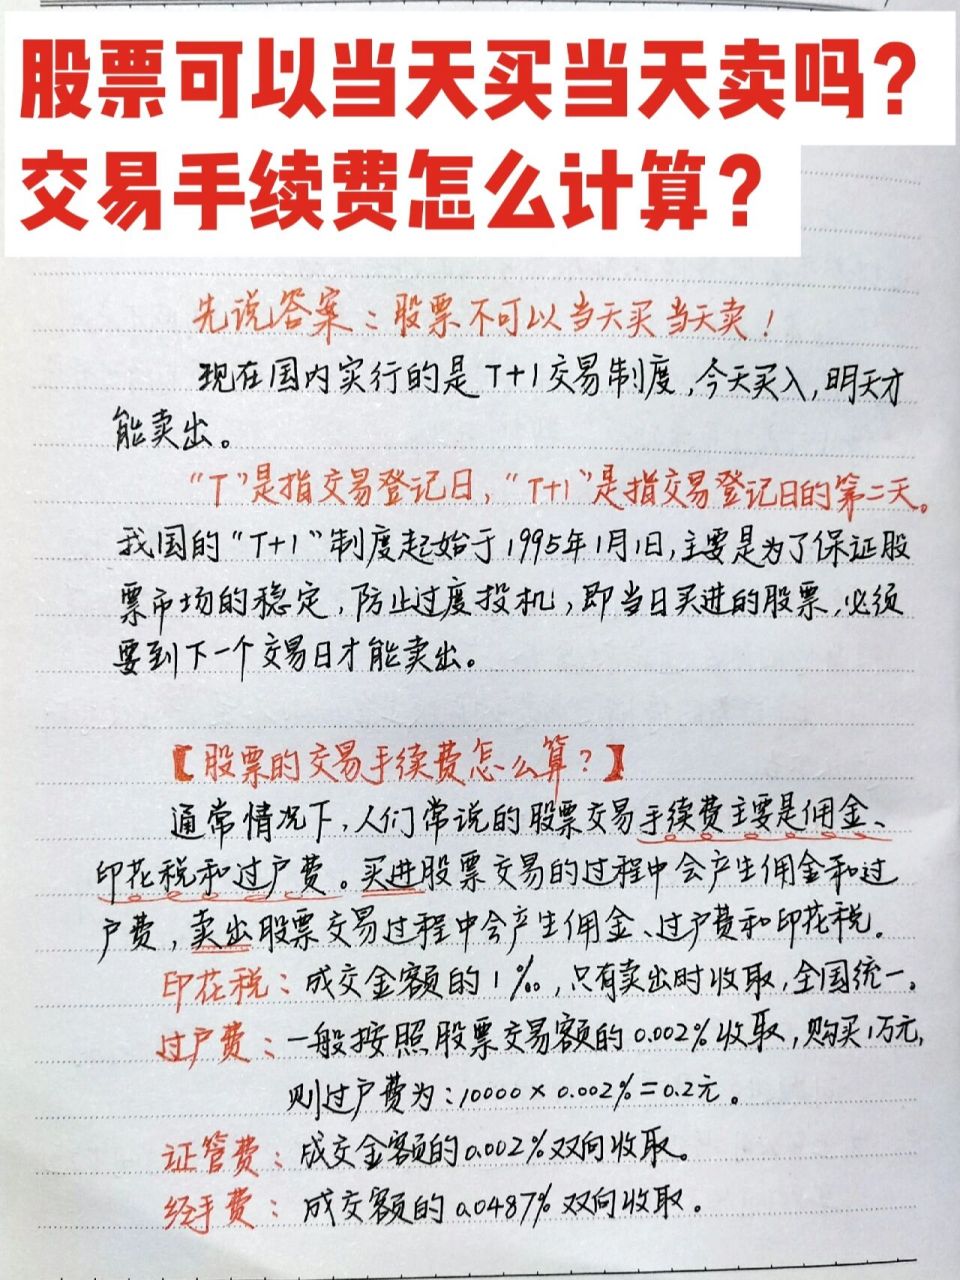 股票可以当天买当天卖吗?
交易手续费怎么计算?
先说答案：股票不可以当天买当天卖！
现在国内实行的是T+1交易制度，今天买入，明天才
能卖出。
“T”是指交易登记日，“T+1”是指交易登记日的第二天。
我国的“T+1”制度起始于1995年1月1日，主要是为了保证股
票市场的稳定，防止过度投机，即当日买进的股票，必须
要到下一个交易日才能卖出。
【股票的交易手续费怎么算？】
通常情况下，人们常说的股票交易手续费主要是佣金、
印花税和过户费。买进股票交易的过程中会产生佣金和过
户费，卖出股票交易过程中会产生佣金、过户费和印花税。
印花税：成交金额的1‰，只有卖出时收取，全国统一。
过户费：一般按照股票交易额的0.002%收取，购买1万元，
则过户费为：10000×0.002%=0.2元。
证管费：成交金额的0.002%双向收取。
经手费：成交额的0.0487%双向收取。